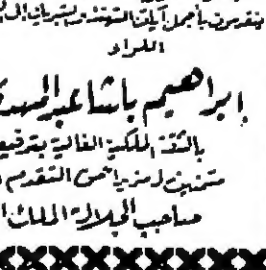 يتقدمون بأجمل آيات التهنئة والتبريك إلى
اللواء
ابراهيم باشا عبد المهدي
بالثقة الملكية الغالية بترفيع
متمنين لـ مزيدا من التقدم
صاحب الجلالة الملك